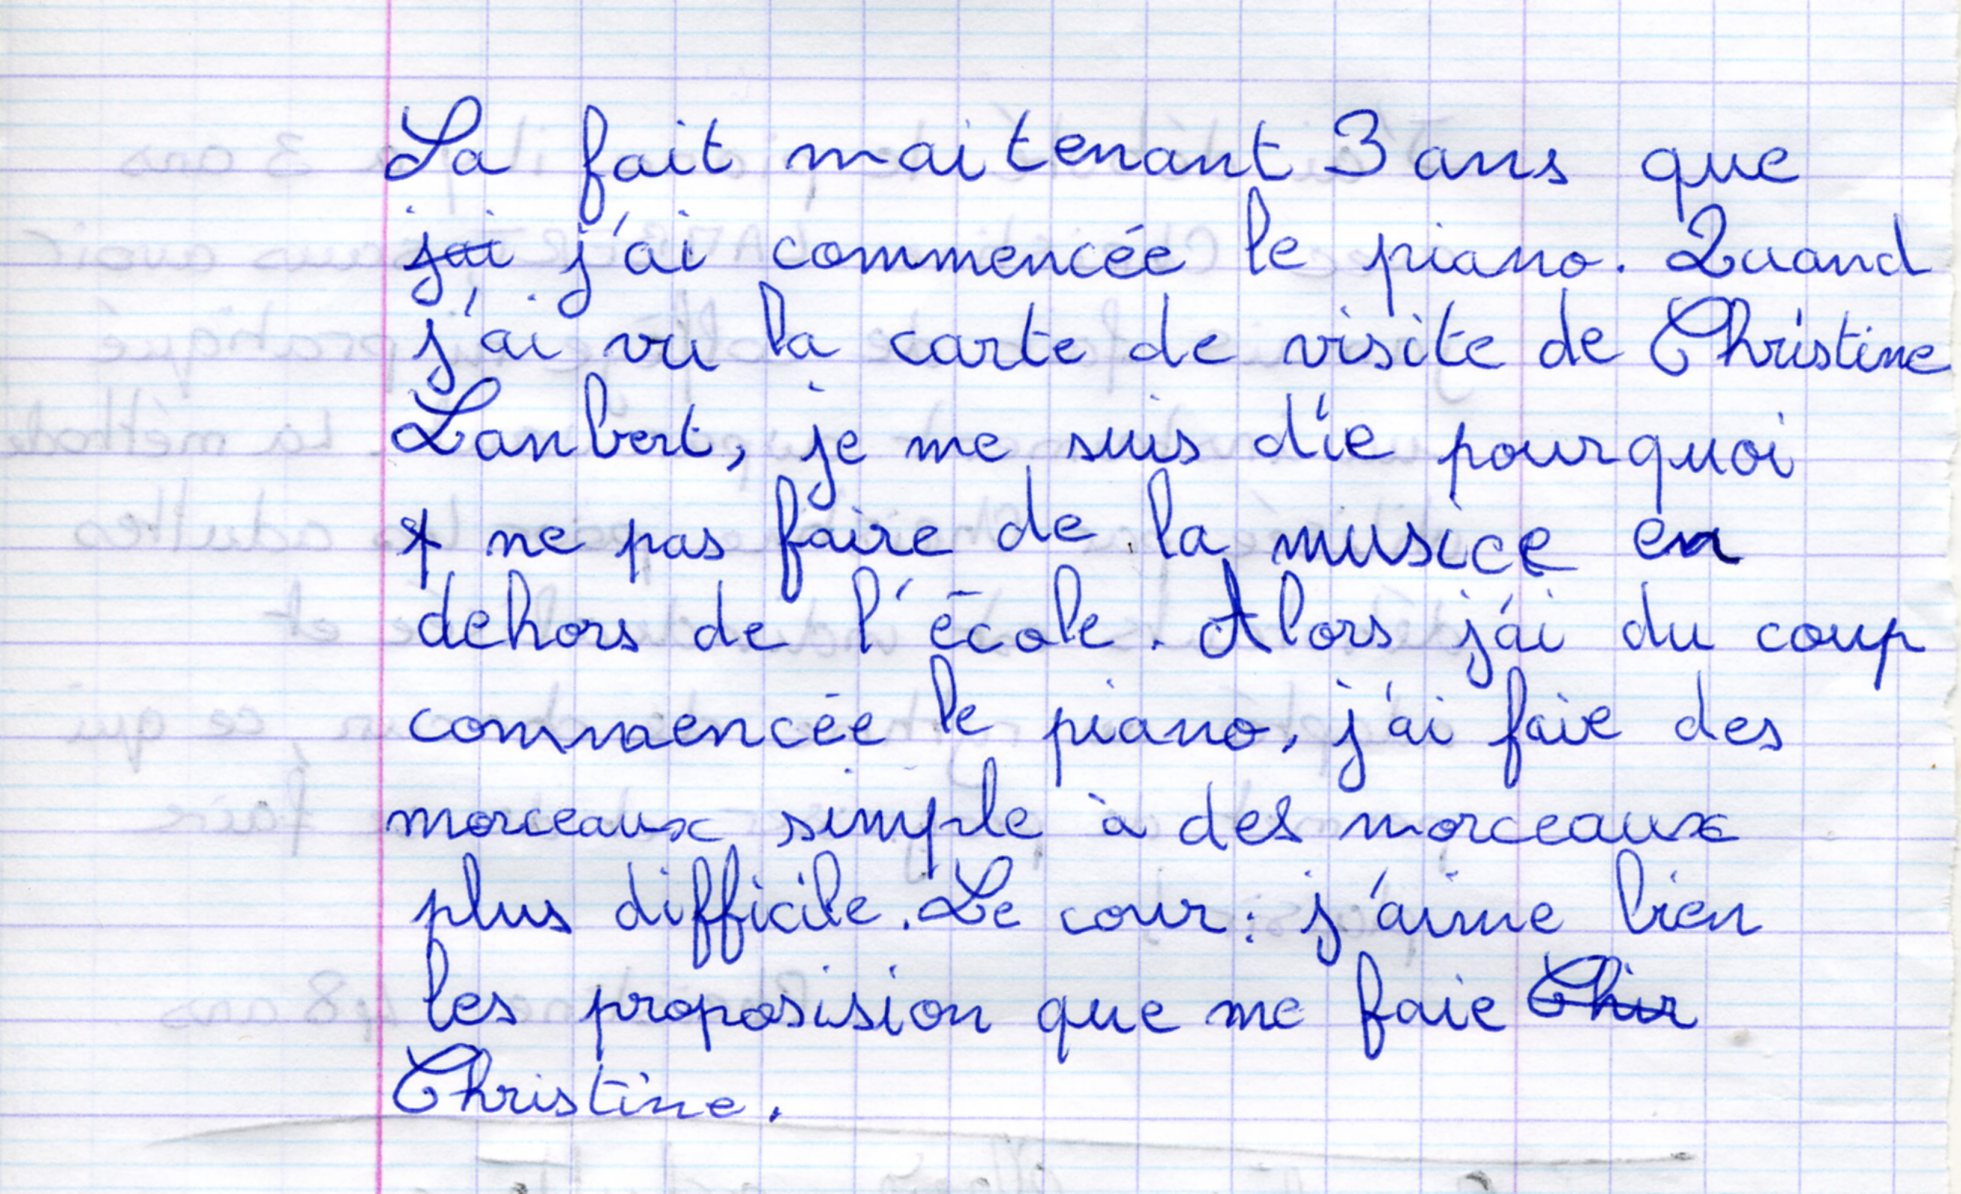 Sa fait maitenant 3 ans que
jai j'ai commencée le piano. Quand
j'ai vu la carte de visite de Christine
Lanbert, je me suis die pourquoi
ne pas faire de la musice en
dehors de l'école. Alors j'ai du coup
commencée le piano, j'ai faie des
morceaux simple à des morceaux
plus difficile. Le cour : j'aime bien
les proposision que me faie Chir
Christine.